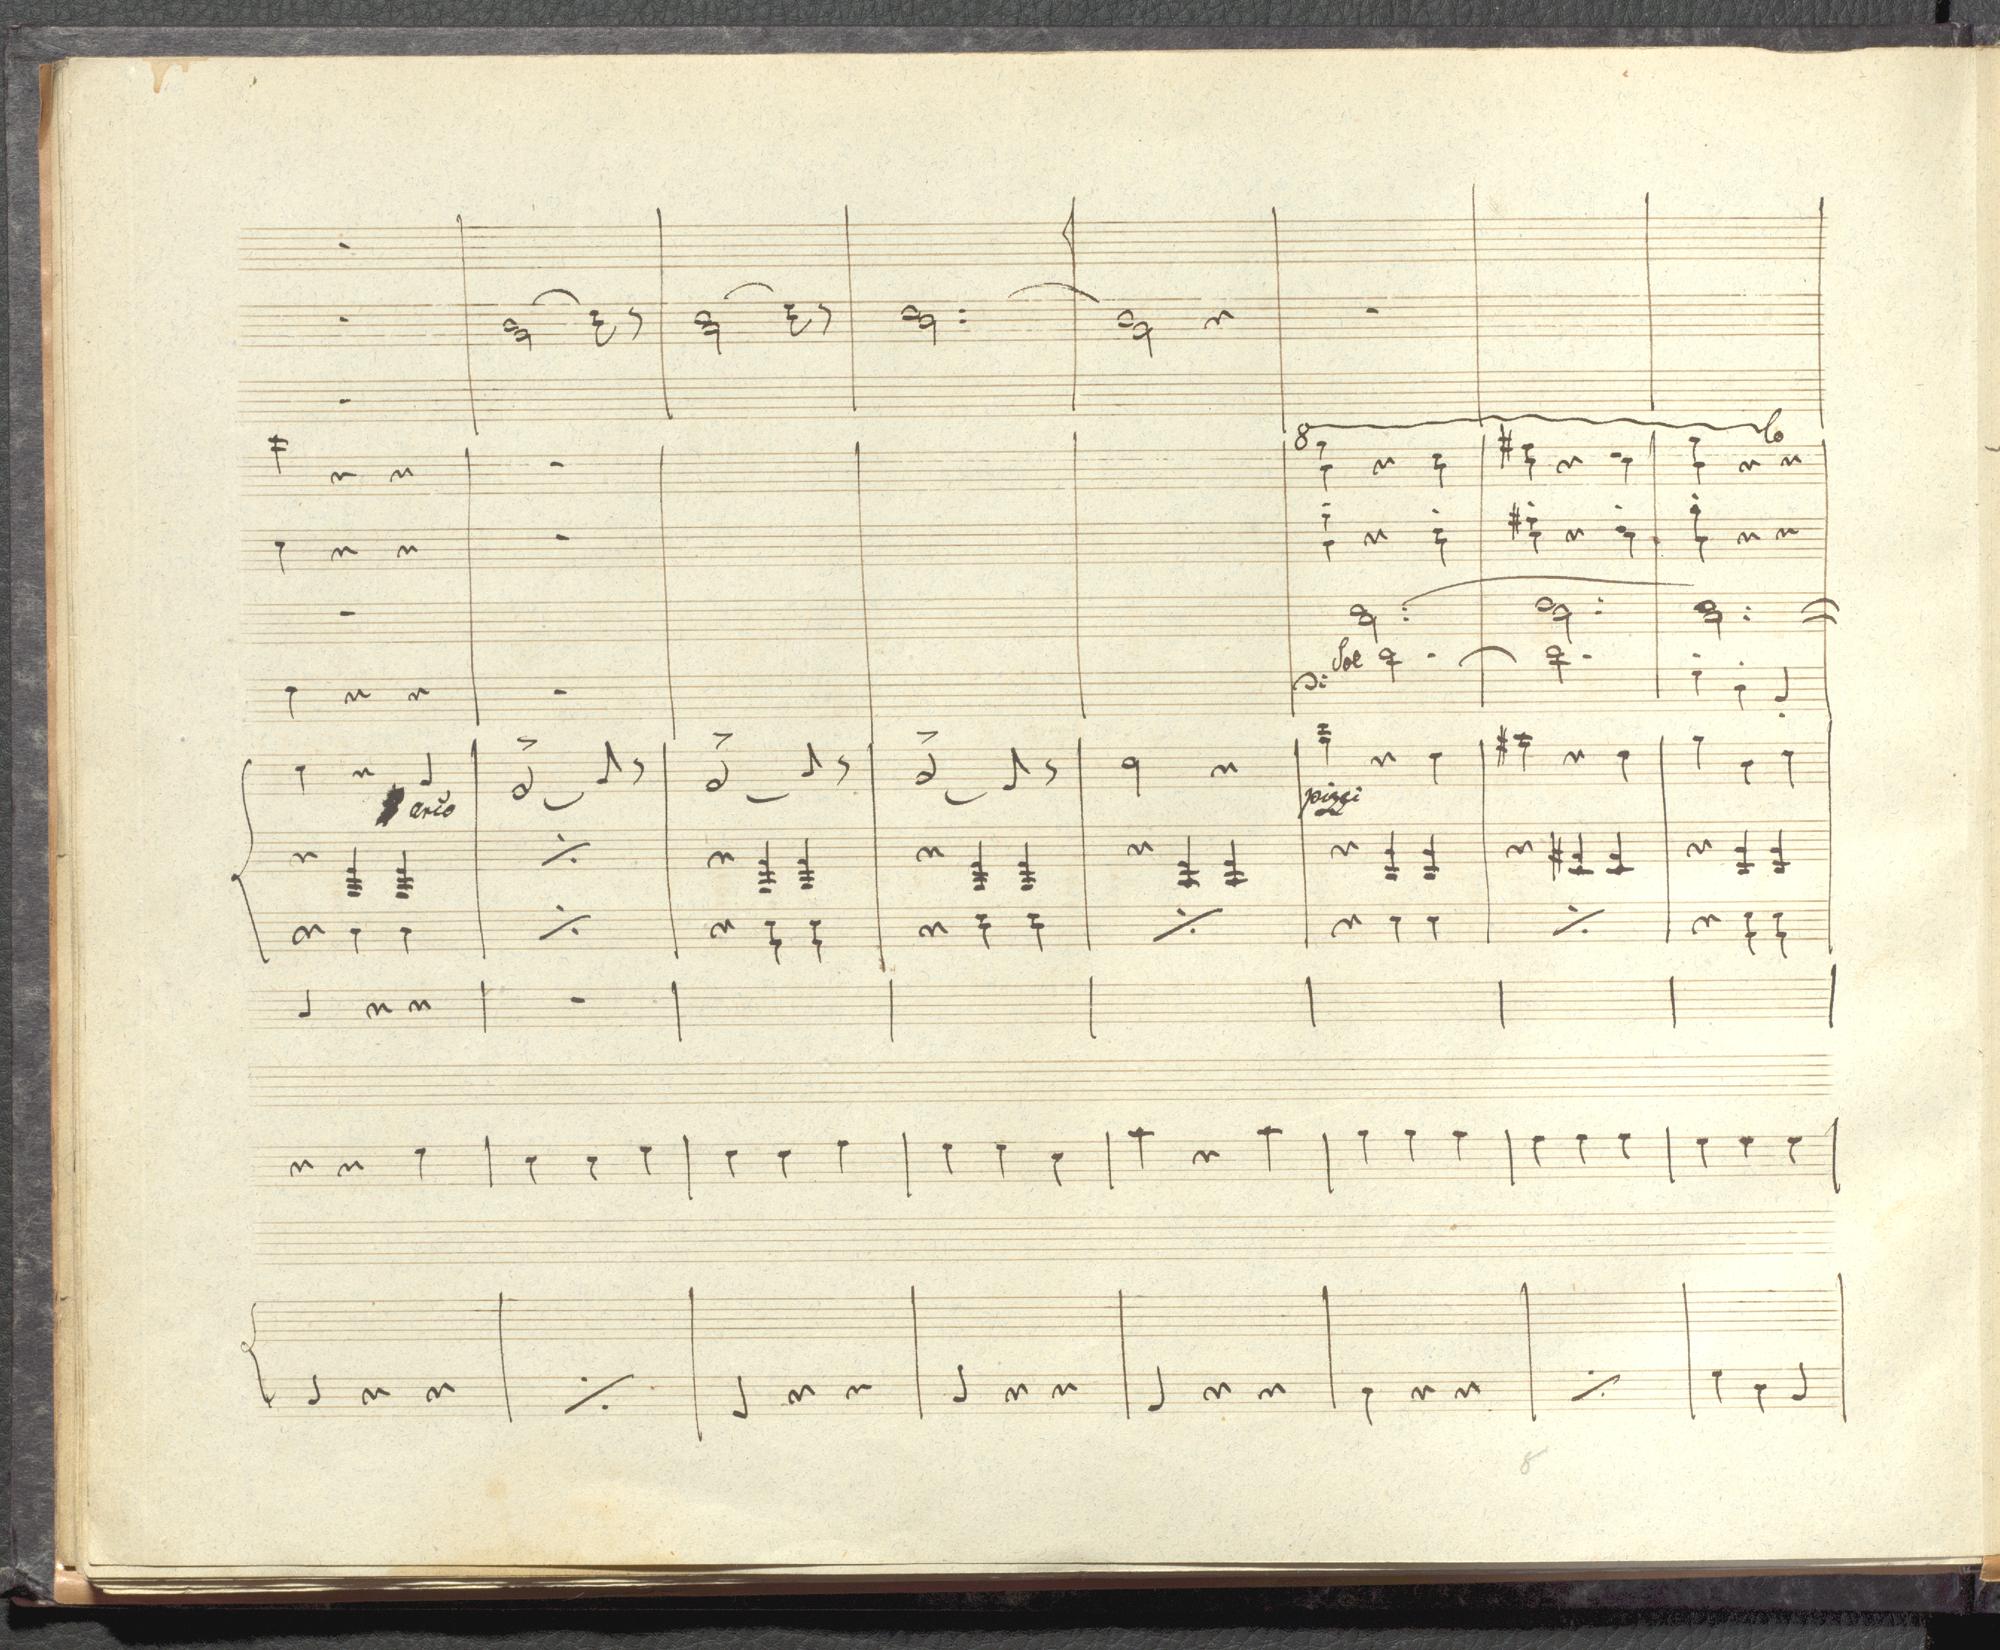 8 lo
Soe
arco
pizzi
8